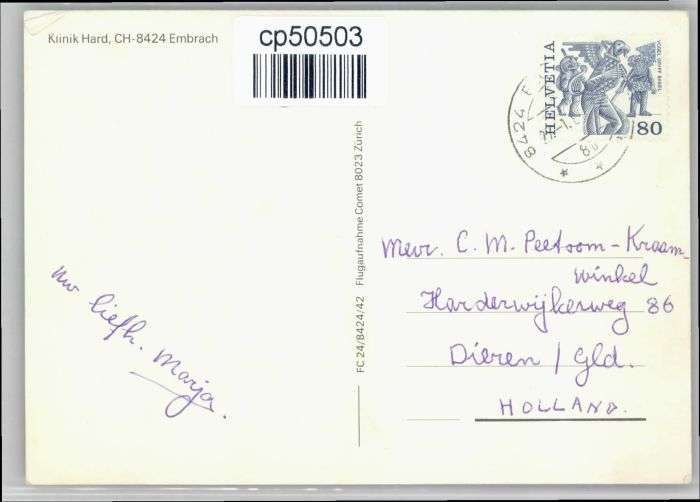 Klinik Hard, CH-8424 Embrach
cp50503
HELVETIA
VOGEL GRYFF BASEL
80
8424
FC 24/8424/42 Flugaufnahme Comet 8023 Zürich
Mevr. C. M. Peetoom-Kraam-
winkel
Harderwijkerweg 86
Dieren / Gld.
HOLLAND.
uw liefh. Marja.